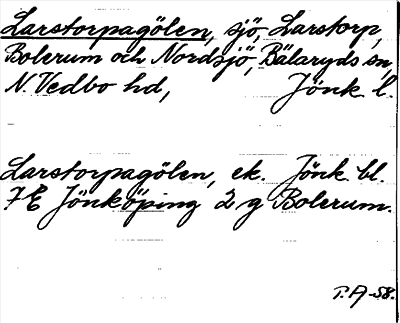 Larstorpagölen, sjö, Larstorp,
Bolerum och Nordsjö, Bälaryds sn,
N. Vedbo hd, Jönk. l.
Larstorpagölen, ek. Jönk. bl.
7E Jönköping 2 g Bolerum.
T.A-58.